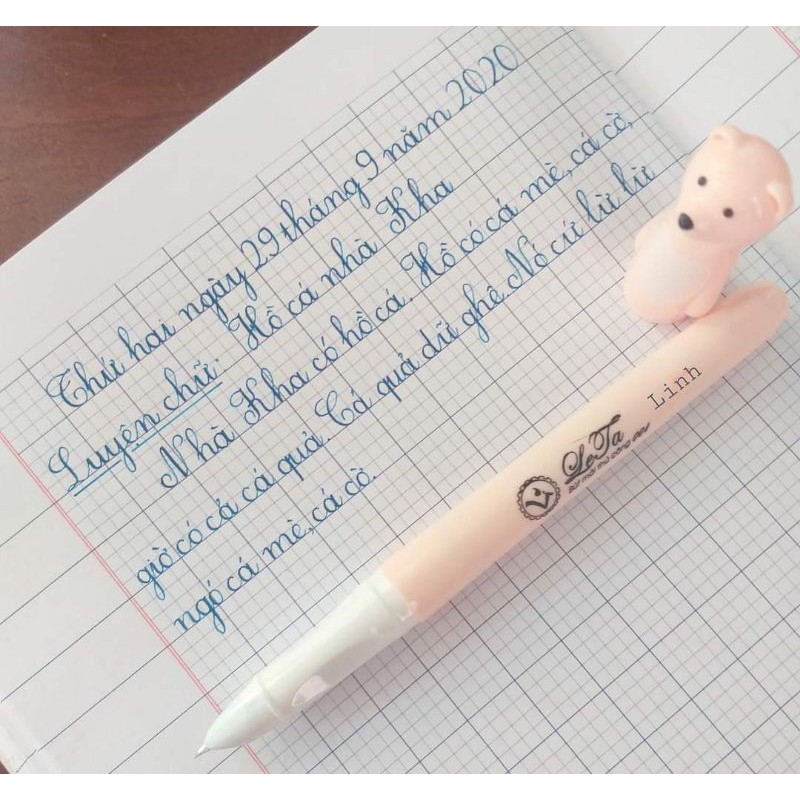 Thứ hai ngày 29 tháng 9 năm 2020
Luyện chữ: Hồ cá nhà Kha
Nhà Kha có hồ cá. Hồ có cá mè, cá cờ,
giờ có cả cá quả. Cá quả dữ ghê. Nó cứ lừ lừ
ngó cá mè, cá cờ.
Linh
LeTa
Bút mài thủ công 001